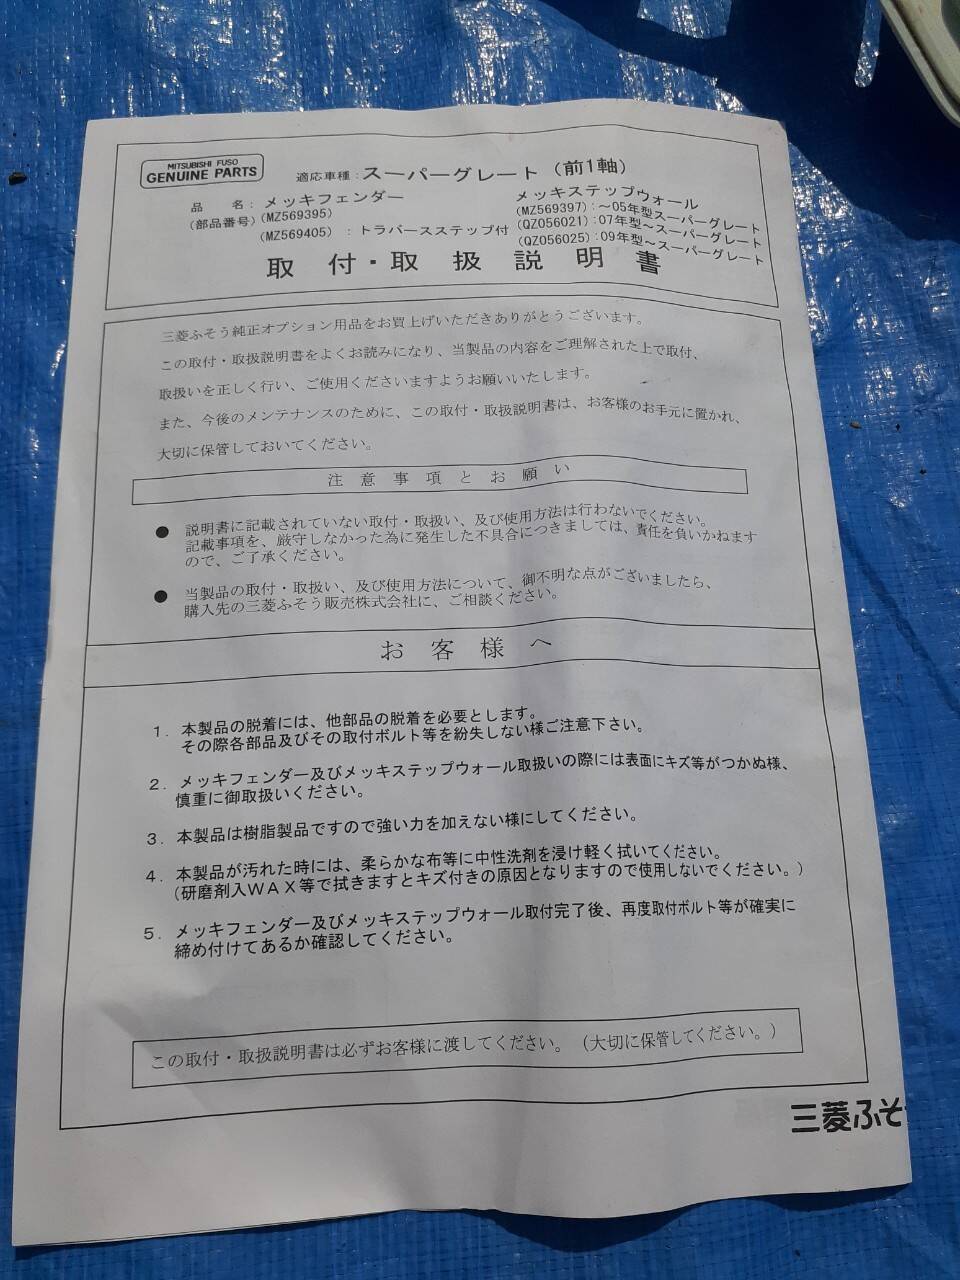 MITSUBISHI FUSO
GENUINE PARTS
適応車種：スーパーグレート（前1軸）
品　名：メッキフェンダー
(部品番号)(MZ569395)
(MZ569405)：トラバースステップ付
メッキステップウォール
(MZ569397)：～05年型スーパーグレート
(QZ056021)：07年型～スーパーグレート
(QZ056025)：09年型～スーパーグレート
取付・取扱説明書
三菱ふそう純正オプション用品をお買上げいただきありがとうございます。
この取付・取扱説明書をよくお読みになり、当製品の内容をご理解された上で取付、
取扱いを正しく行い、ご使用くださいますようお願いいたします。
また、今後のメンテナンスのために、この取付・取扱説明書は、お客様のお手元に置かれ、
大切に保管しておいてください。
注意事項とお願い
● 説明書に記載されていない取付・取扱い、及び使用方法は行わないでください。
記載事項を、厳守しなかった為に発生した不具合につきましては、責任を負いかねます
ので、ご了承ください。
● 当製品の取付・取扱い、及び使用方法について、御不明な点がございましたら、
購入先の三菱ふそう販売株式会社に、ご相談ください。
お客様へ
1．本製品の脱着には、他部品の脱着を必要とします。
その際各部品及びその取付ボルト等を紛失しない様ご注意下さい。
2．メッキフェンダー及びメッキステップウォール取扱いの際には表面にキズ等がつかぬ様、
慎重に御取扱いください。
3．本製品は樹脂製品ですので強い力を加えない様にしてください。
4．本製品が汚れた時には、柔らかな布等に中性洗剤を浸け軽く拭いてください。
（研磨剤入WAX等で拭きますとキズ付きの原因となりますので使用しないでください。）
5．メッキフェンダー及びメッキステップウォール取付完了後、再度取付ボルト等が確実に
締め付けてあるか確認してください。
この取付・取扱説明書は必ずお客様に渡してください。（大切に保管してください。）
三菱ふそ